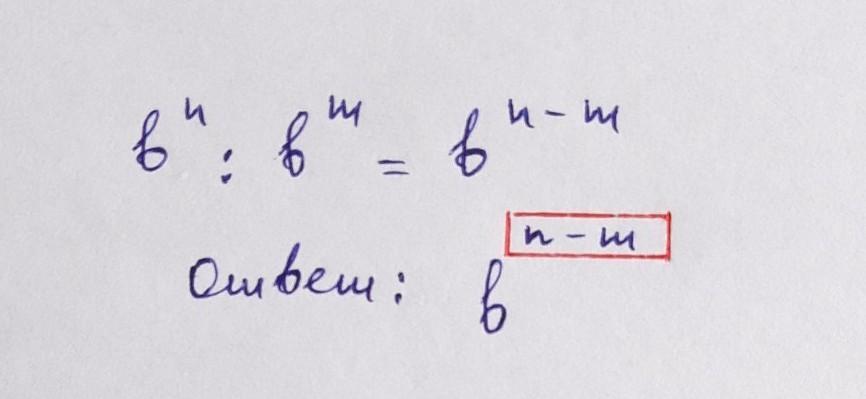 bⁿ : bᵐ = bⁿ⁻ᵐ
Ответ: bⁿ⁻ᵐ